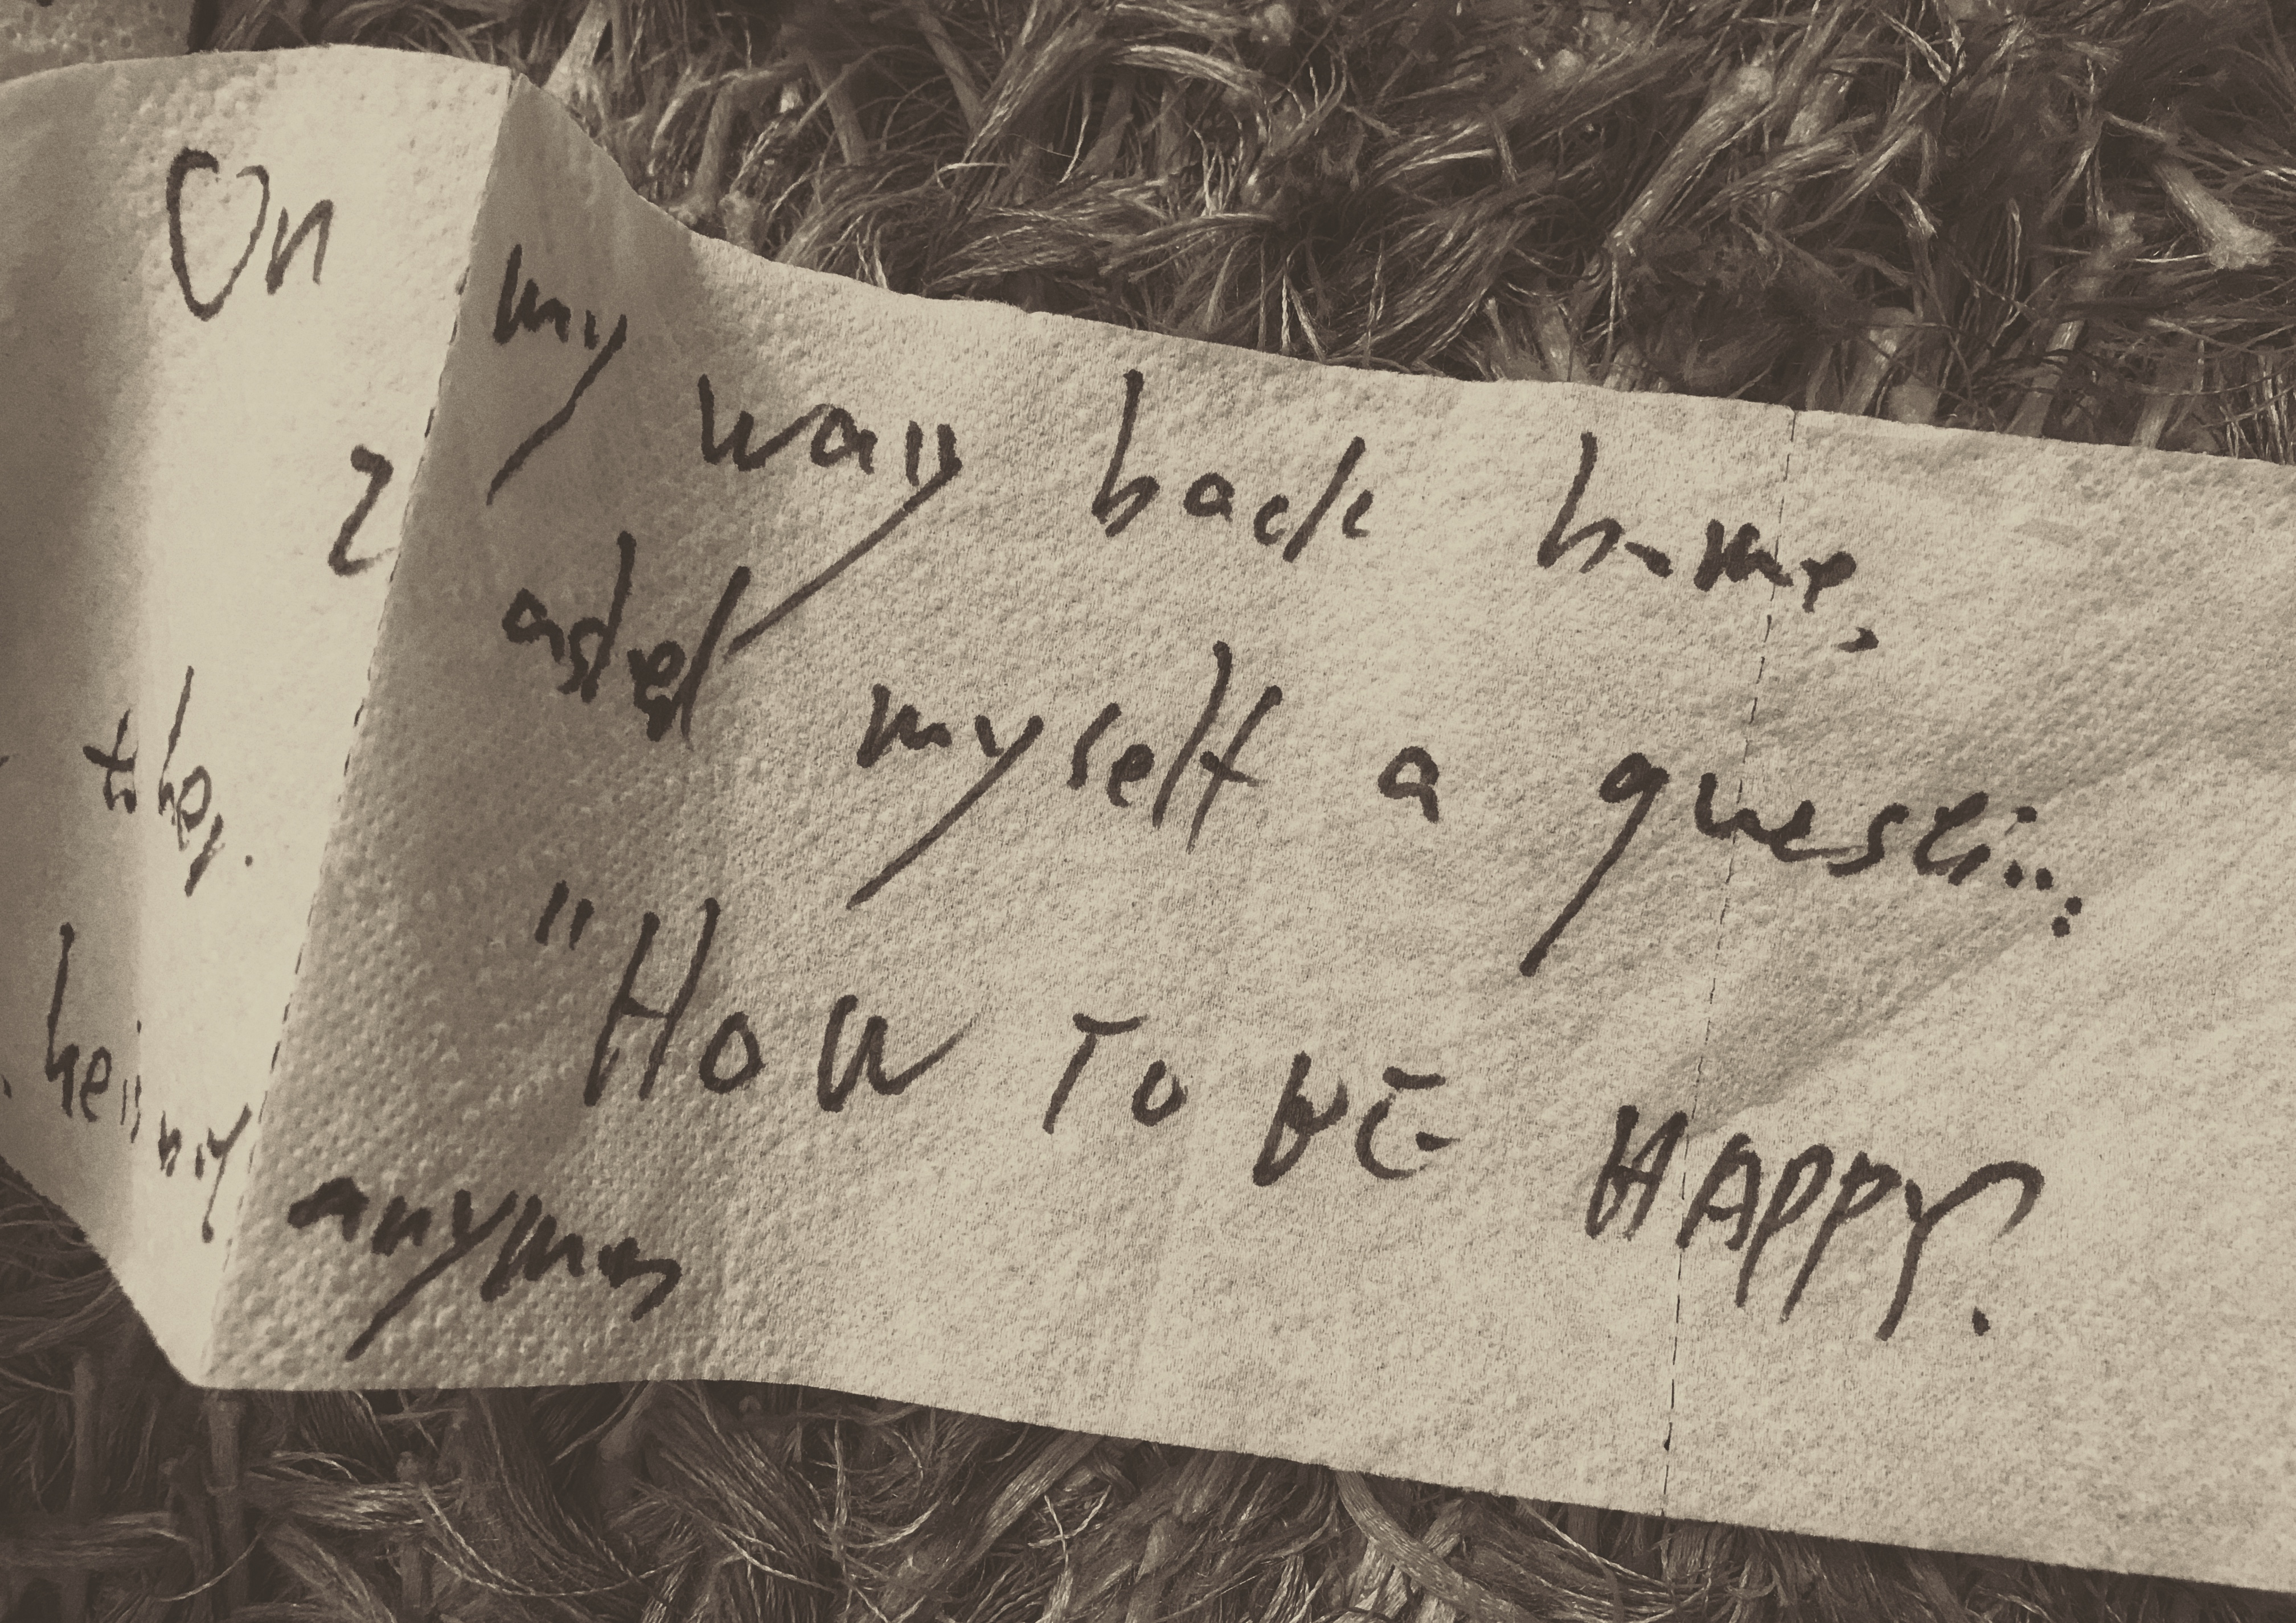 On my way back home,
I asked myself a question:
"HOW TO BE HAPPY?
they.
anymore